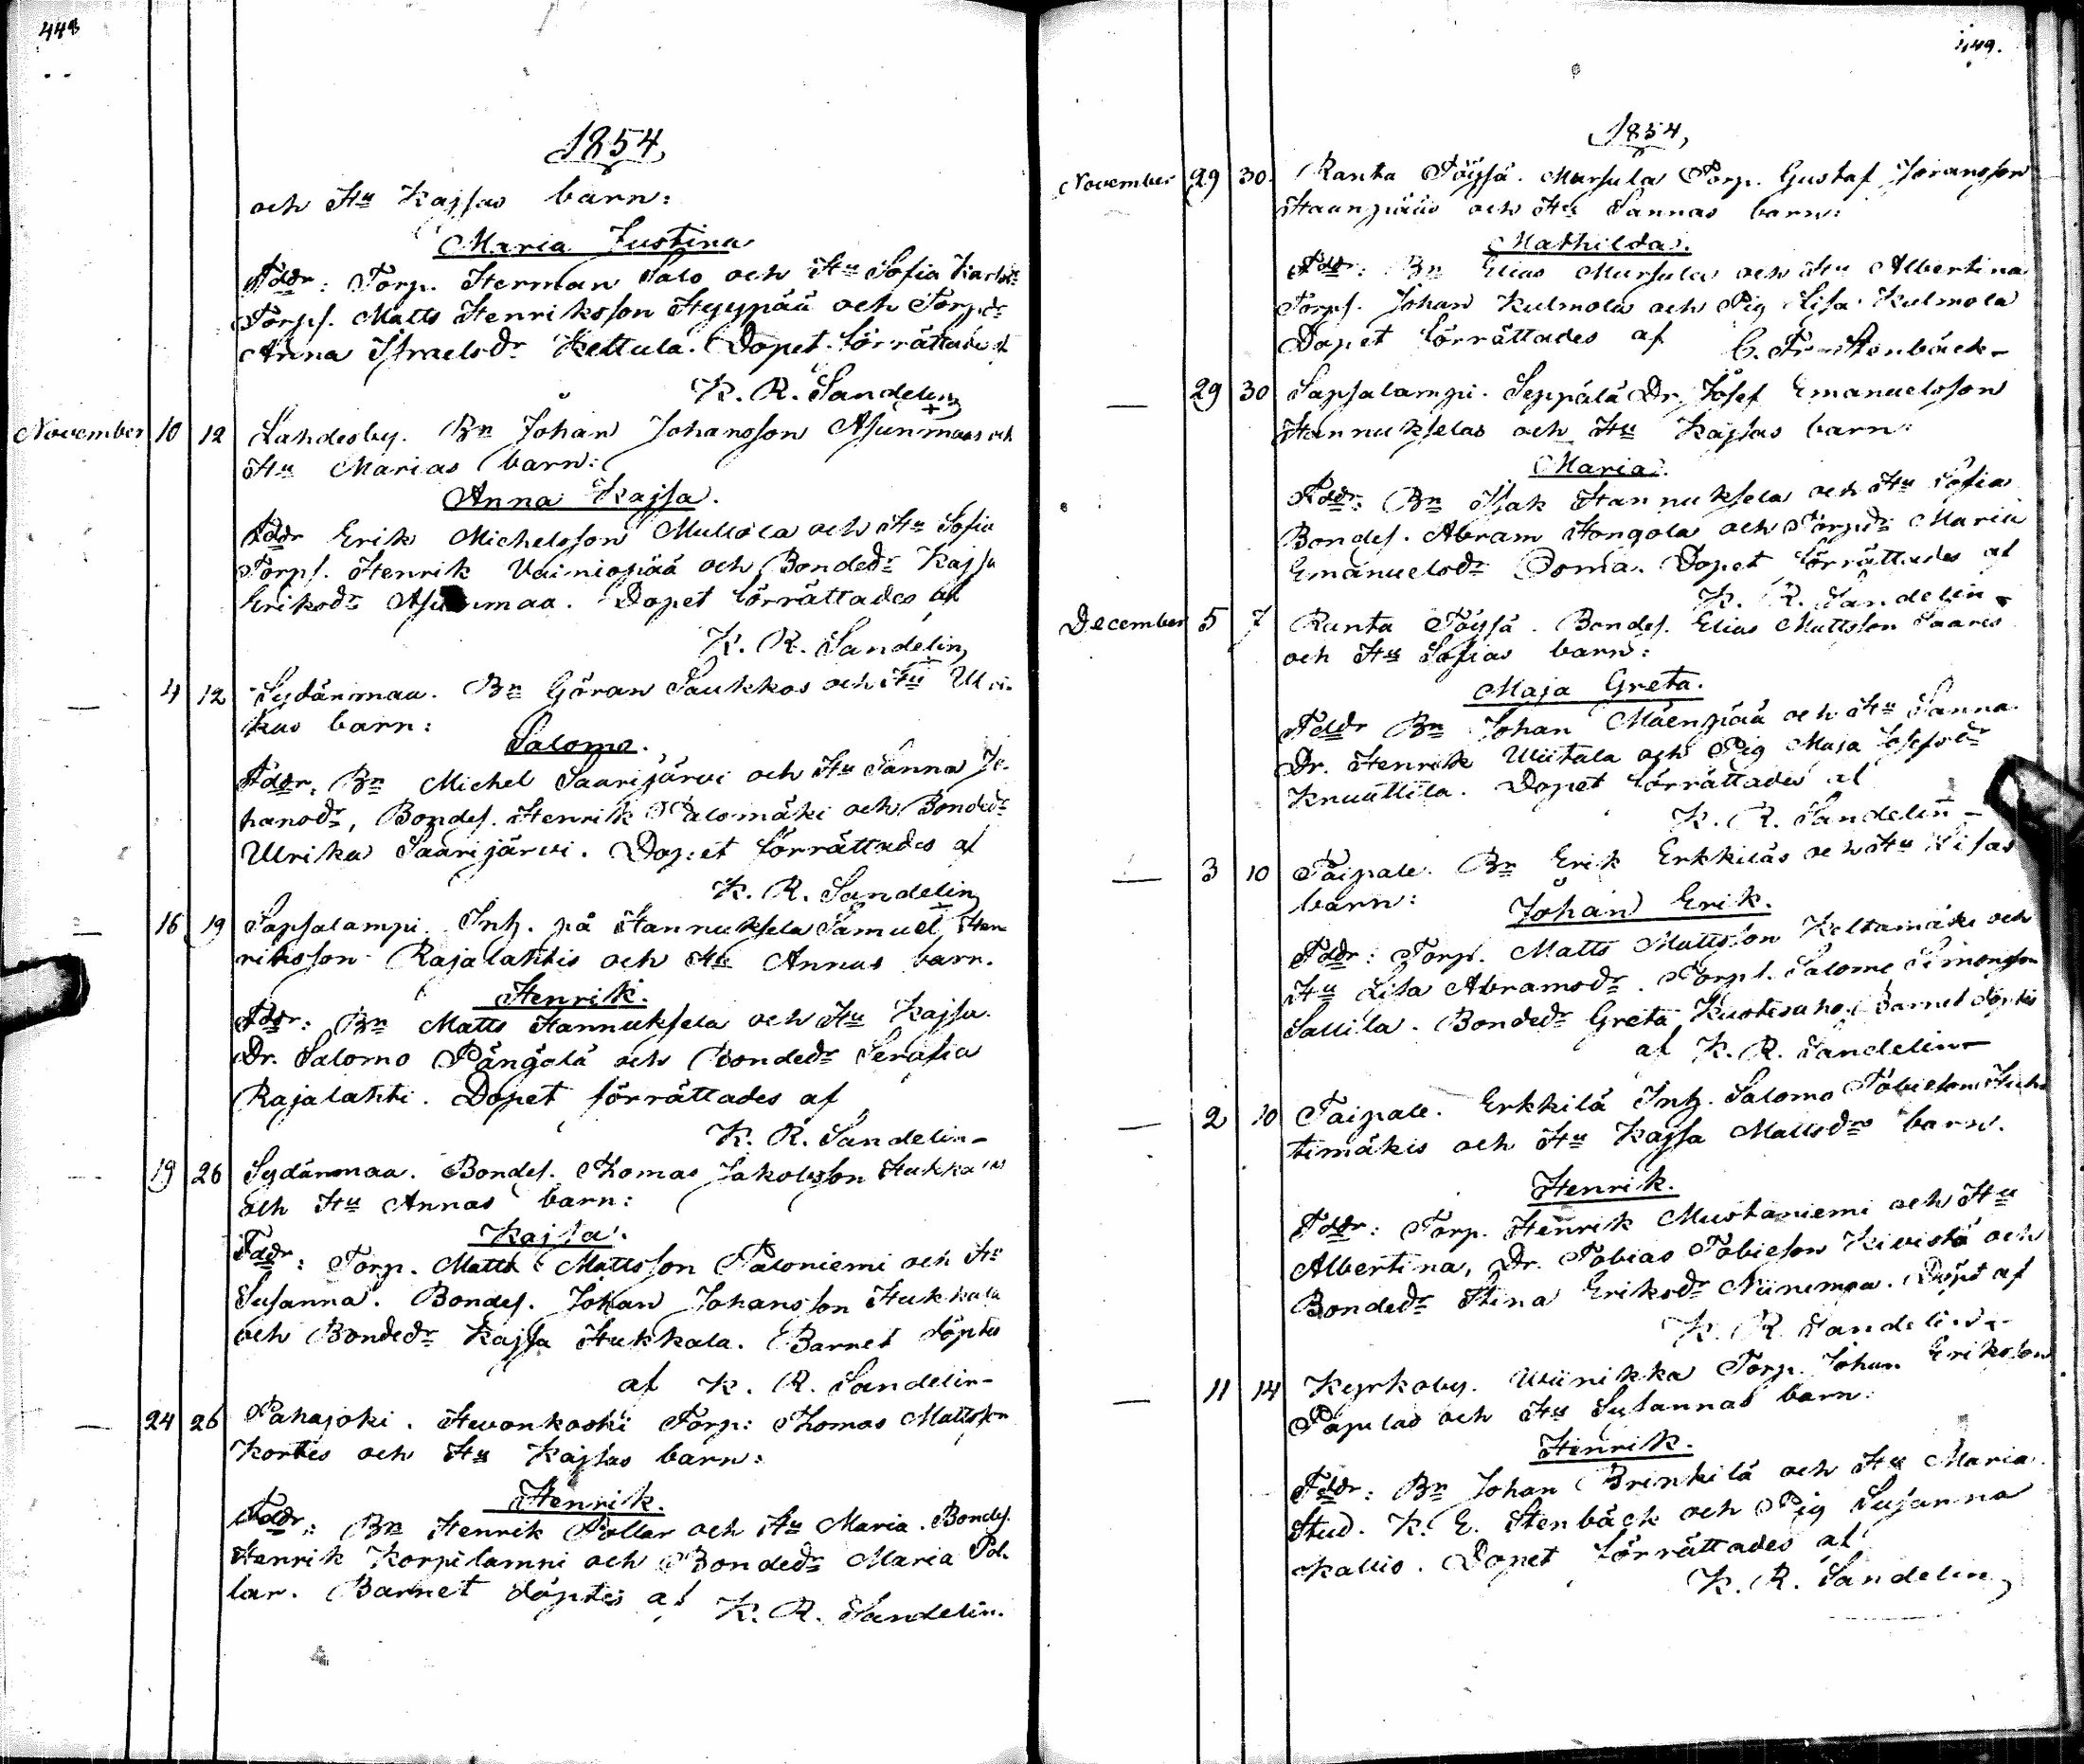 448
1854
och Hu Kajsas barn:
Maria Justina
Fddr: Torp. Herman Salo och Hu Sofia
Torps. Matts Henriksson Hyypää och Torpdr
Anna Israelsdr Kettula. Dopet förrättades af
K. R. Sandelin
November 10 12 Lahdesby. Bn Johan Johansson Asunmaas och
Hu Marias barn:
Anna Kajsa.
Fddr Erik Michelsson Mullola och Hu Sofia
Torps. Henrik Vainiopää och Bondedr Kajsa
Eriksdr Asunmaa. Dopet förrättades af
K. R. Sandelin
— 4 12 Sydänmaa. Bn Göran Saukkos och Hu Ulri-
kas barn:
Salomo.
Fddr. Bn Michel Saarijärvi och Hu Sanna Jo-
hansdr, Bondes. Henrik Palomäki och Bondedr
Ulrika Saarijärvi. Dopet förrättades af
K. R. Sandelin
— 16 19 Sapsalampi. Inh. på Hannuksela Samuel Hen
riksson Rajalahtis och Hu Annas barn.
Henrik.
Fddr: Bn Matts Hannuksela och Hu Kajsa.
Dr. Salomo Pängölä och Bondedr Serafia
Rajalahti. Dopet förrättades af
K. R. Sandelin-
— 19 26 Sydänmaa. Bondes. Thomas Jakobsson Hukkalas
och Hu Annas barn:
Kajsa.
Fddr: Torp. Matts Mattsson Paloniemi och Hu
Susanna. Bondes. Johan Johansson Hukkala
och Bondedr Kajsa Hukkala. Barnet döptes
af K. R. Sandelin-
— 24 26 Pahajoki. Hevonkoski Torp: Thomas Mattsson
Kortes och Hu Kajsas barn:
Henrik.
Fddr: Bn Henrik Pollar och Hu Maria. Bondes.
Henrik Korpilammi och Bondedr Maria Pol-
lar. Barnet döptes af K. R. Sandelin.
449.
1854,
November 29 30. Ranta Töysä. Mursula Torp. Gustaf Göransson
Haanpääs och Hu Sannas barn:
Mathilda.
Fddr: Bn Elias Mursula och Hu Albertina
Torps. Johan Kulmola och Pig Lisa Kulmola
Dopet förrättades af C. Fr. Stenbäck-
— 29 30 Sapsalampi. Seppälä Dr. Josef Emanuelsson
Hannukselas och Hu Kajsas barn:
Maria.
Fddr: Bn Isak Hannuksela och Hu Sofia
Bondes. Abram Hongola och Torpdr Maria
Emanuelsdr Doma. Dopet förrättades af
K. R. Sandelin-
December 5 7 Ranta Töysä. Bondes. Elias Mattsson Saares
och Hu Sofias barn:
Maja Greta.
Fddr Bn Johan Mäenpää och Hu Sanna
Dr. Henrik Wiitala och Pig Maja Josefsdr
Knuuttila. Dopet förrättades af
K. R. Sandelin-
— 3 10 Taipale. Bn Erik Erkkiläs och Hu Lisas
barn: Johan Erik.
Fddr: Torp. Matts Mattsson Keltamäki och
Hu Lisa Abramsdr. Torps. Salome Simonsson
Sallila. Bondedr Greta Barnet döptes
af K. R. Sandelin-
— 2 10 Taipale. Erkkilä Inh. Salomo Tobiesson Huh-
timäkis och Hu Kajsa Mattsdrs barn.
Henrik.
Fddr: Torp. Henrik Mustaniemi och Hu
Albertina, Dr. Tobias Tobieson Kivistö och
Bondedr Stina Eriksdr Niinimaa. Döpt af
K. R. Sandelin-
— 11 14 Kyrkoby. Wiinikka Torp. Johan Eriksson
Papulas och Hu Susannas barn:
Henrik.
Fddr: Bn Johan Brinkilä och Hu Maria.
Stud. K. E. Stenbäck och Pig Susanna
Kallio. Dopet förrättades af
K. R. Sandelin